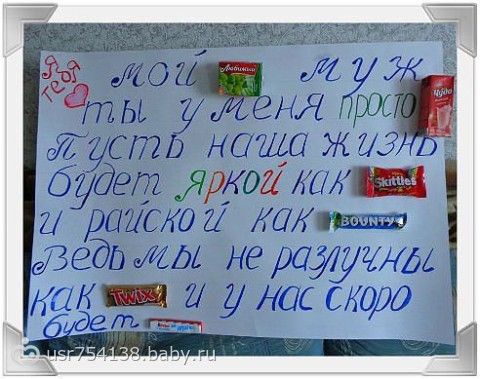 Я ❤ тебя
мой Любимый муж
ты у меня просто Чудо
Пусть наша жизнь
будет яркой как Skittles
и райской как BOUNTY
Ведь мы не разлучны
как Twix и у нас скоро
будет
usr754138.baby.ru